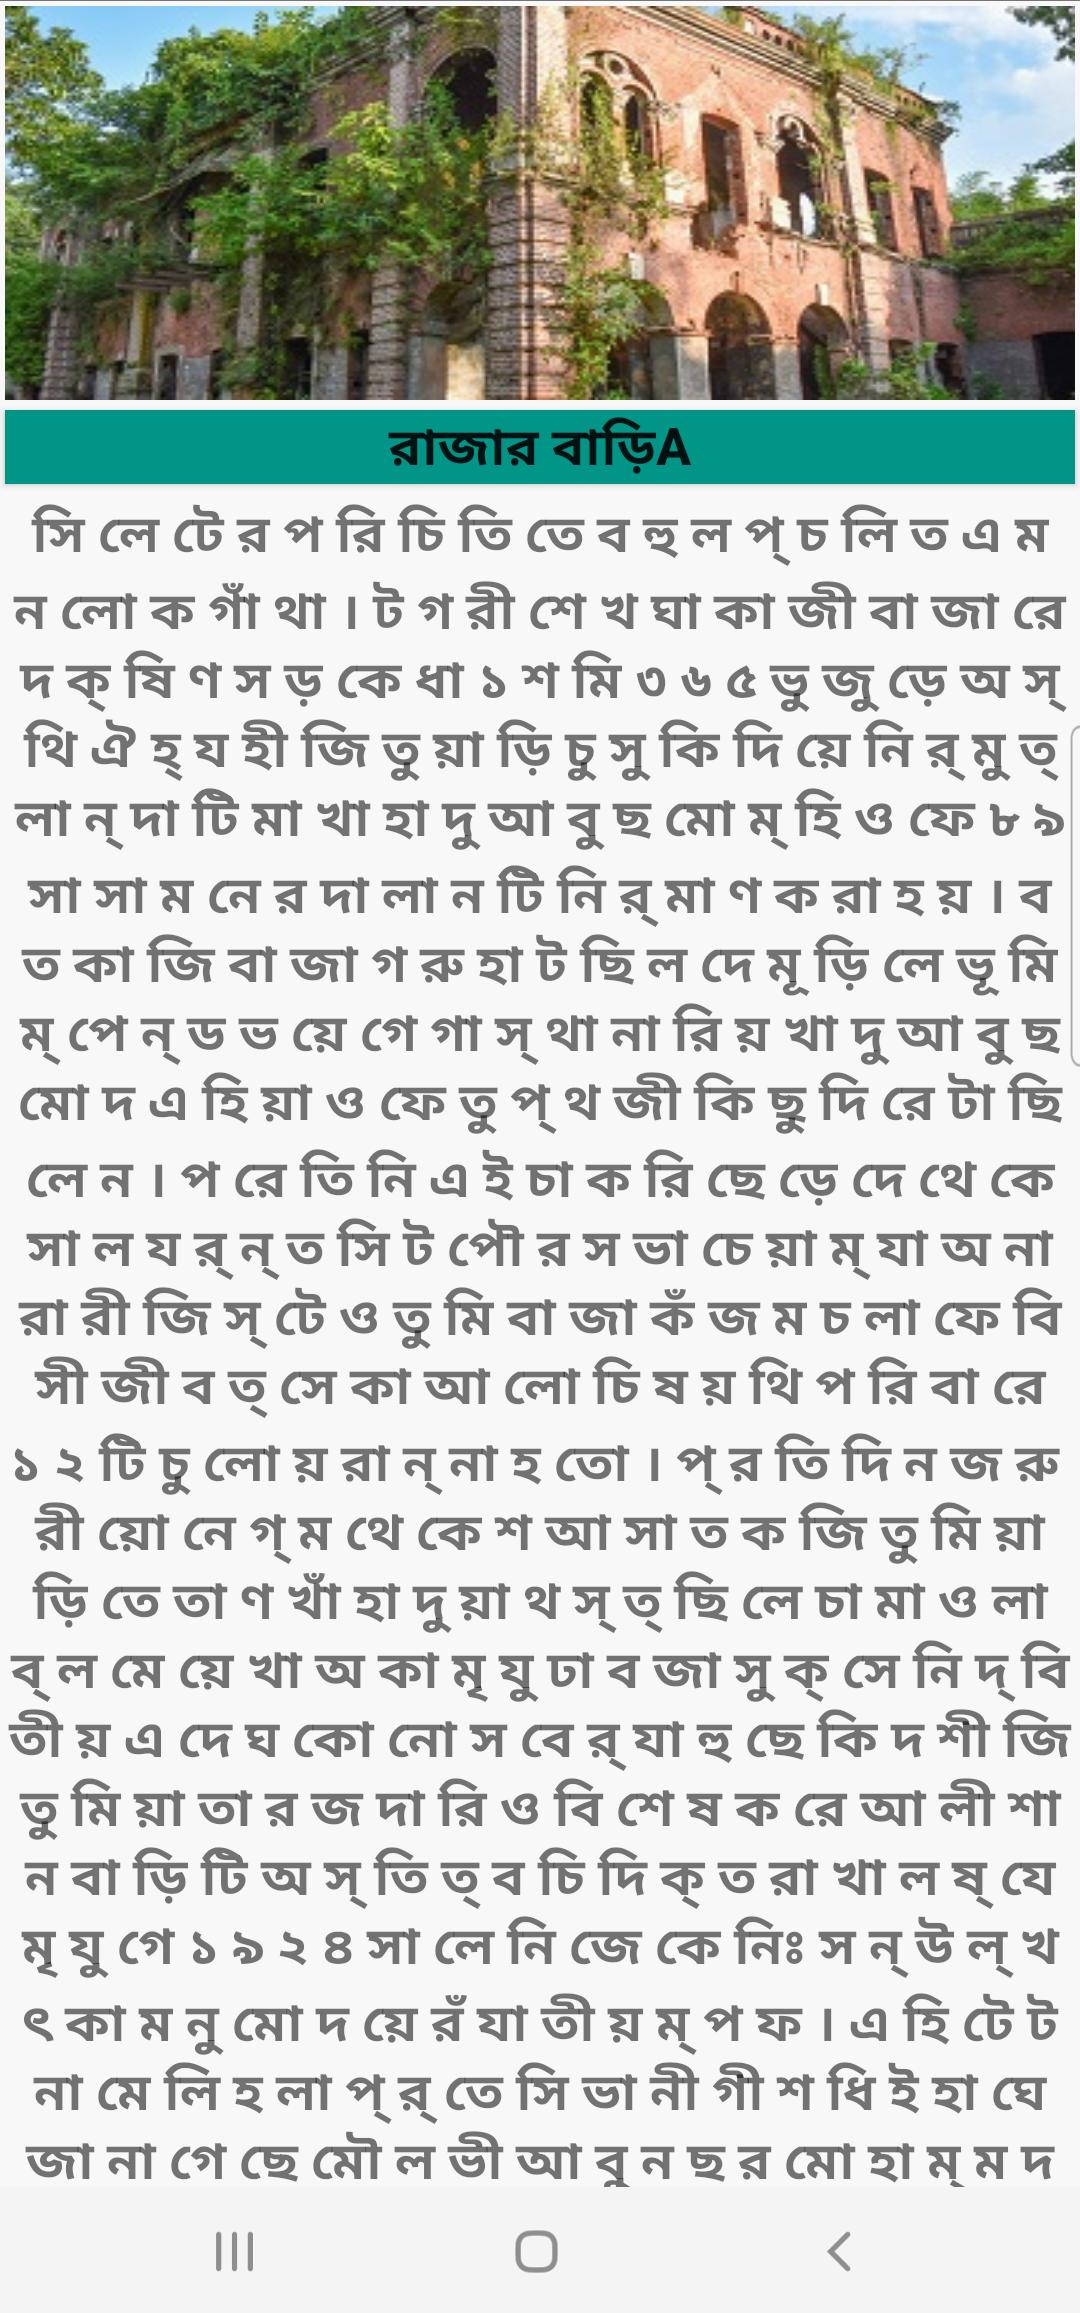 রাজার বাড়িA
সি লে টে র প রি চি তি তে ব হু ল প্ চ লি ত এ ম
ন লো ক গাঁ থা । ট গ রী শে খ ঘা কা জী বা জা রে
দ ক্ ষি ণ স ড় কে ধা ১ শ মি ৩ ৬ ৫ ভু জু ড়ে অ স্
থি ঐ হ্ য হী জি তু য়া ড়ি চু সু কি দি য়ে নি র্ মু ত্
লা ন্ দা টি মা খা হা দু আ বু ছ মো ম্ হি ও ফে ৮ ৯
সা সা ম নে র দা লা ন টি নি র্ মা ণ ক রা হ য় । ব
ত কা জি বা জা গ রু হা ট ছি ল দে মূ ড়ি লে ভূ মি
ম্ পে ন্ ড ভ য়ে গে গা স্ থা না রি য় খা দু আ বু ছ
মো দ এ হি য়া ও ফে তু প্ থ জী কি ছু দি রে টা ছি
লে ন । প রে তি নি এ ই চা ক রি ছে ড়ে দে থে কে
সা ল য র্ ন্ ত সি ট পৌ র স ভা চে য়া ম্ যা অ না
রা রী জি স্ টে ও তু মি বা জা কঁ জ ম চ লা ফে বি
সী জী ব ত্ সে কা আ লো চি ষ য় থি প রি বা রে
১ ২ টি চু লো য় রা ন্ না হ তো । প্ র তি দি ন জ রু
রী য়ো নে গ্ ম থে কে শ আ সা ত ক জি তু মি য়া
ড়ি তে তা ণ খাঁ হা দু য়া থ স্ ত্ ছি লে চা মা ও লা
ব্ ল মে য়ে খা অ কা মৃ যু ঢা ব জা সু ক্ সে নি দ্ বি
তী য় এ দে ঘ কো নো স বে র্ যা হু ছে কি দ শী জি
তু মি য়া তা র জ দা রি ও বি শে ষ ক রে আ লী শা
ন বা ড়ি টি অ স্ তি ত্ ব চি দি ক্ ত রা খা ল ষ্ যে
মৃ যু গে ১ ৯ ২ ৪ সা লে নি জে কে নিঃ স ন্ উ ল্ খ
ৎ কা ম নু মো দ য়ে রঁ যা তী য় ম্ প ফ । এ হি টে ট
না মে লি হ লা প্ র্ তে সি ভা নী গী শ ধি ই হা ঘে
জা না গে ছে মৌ ল ভী আ বু ন ছ র মো হা ম্ ম দ